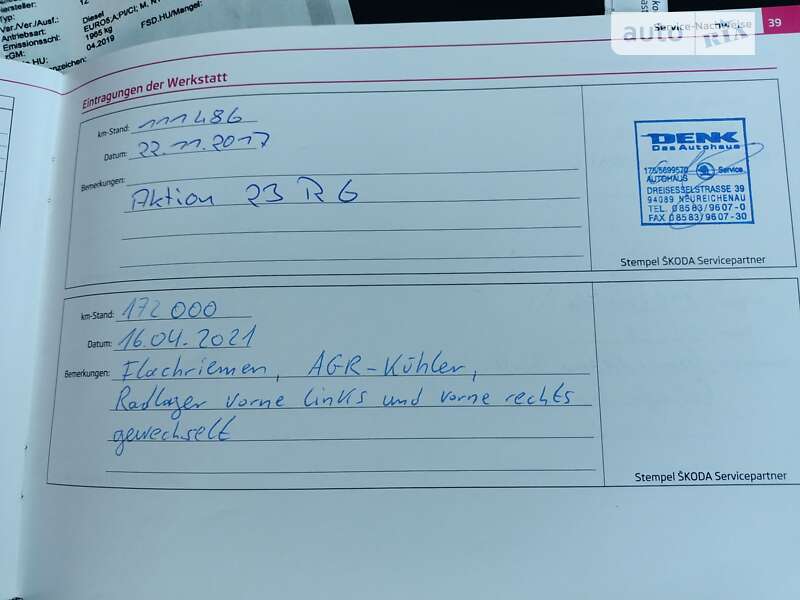 ersteller:
12
Typ:
Diesel
Ver./Ver./Ausf.:
Antriebsart:
EURO5;A;PI/CI; M, N
FSD.HU/Mangel:
Emissionsschl:
1965 kg
zGM:
04.2019
HU:
nzeichen:
Service-Nachweise
39
auto RIA
Eintragungen der Werkstatt
km-Stand: 111486
Datum: 22.11.2017
Bemerkungen:
Aktion 23 R6
DENK
Das Autohaus
175/5699570
AUTOHAUS
Service
DREISESSELSTRASSE 39
94089 NEUREICHENAU
TEL. 08583/9607-0
FAX 08583/9607-30
Stempel ŠKODA Servicepartner
km-Stand: 172 000
Datum: 16.04.2021
Bemerkungen: Flachriemen, AGR-Kühler,
Radlager vorne links und vorne rechts
gewechselt
Stempel ŠKODA Servicepartner